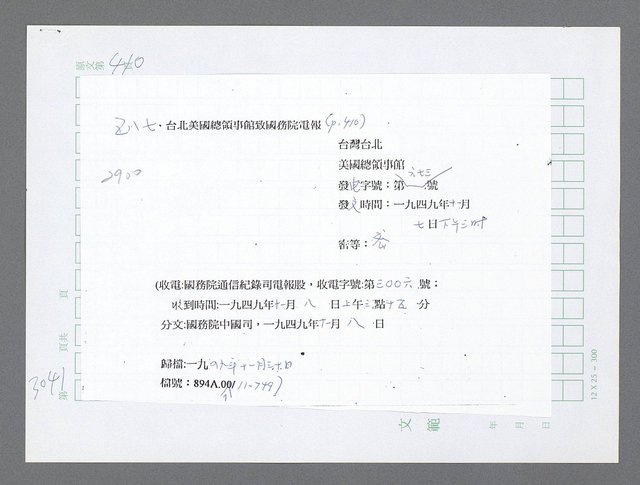 原文第410
五八七．台北美國總領事館致國務院電報(p.410)
台灣台北
美國總領事館
六七三
發電字號：第 號
2900
發文時間：一九四九年十一月
七日下午三時
密等：密
(收電:國務院通信紀錄司電報股，收電字號:第三00六 號；
收到時間:一九四九年十一月 八 日上午三點十五 分
分文:國務院中國司，一九四九年十一月 八 日
歸檔:一九四九年十一月三十日
檔號：894A.00/11-749)
頁
頁共
第3041
文範
年 月 日
12 X 25 - 300